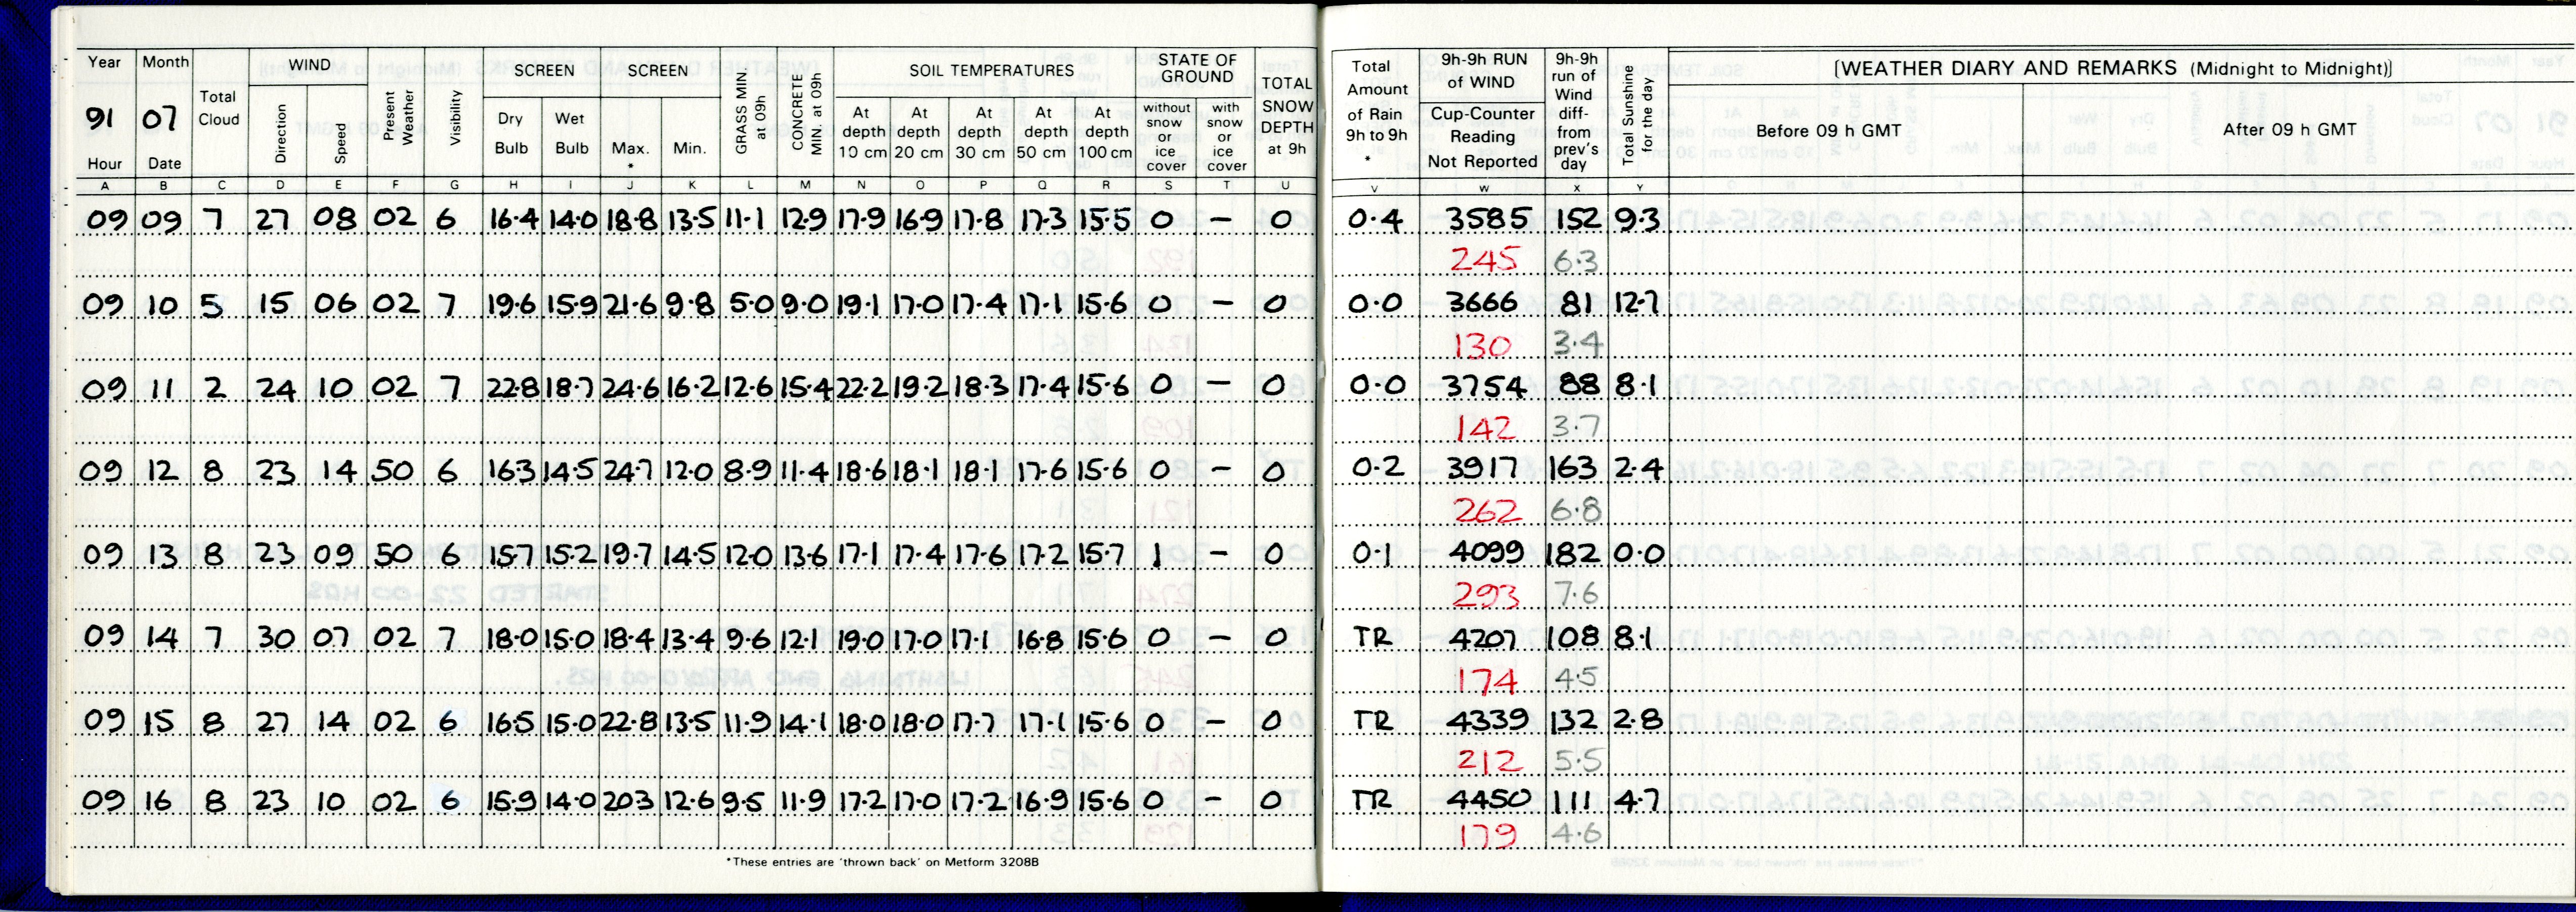 Year Month WIND SCREEN SCREEN SOIL TEMPERATURES STATE OF GROUND
91 07 Total Cloud Direction Speed Present Weather Visibility Dry Bulb Wet Bulb Max. * Min. GRASS MIN. at 09h CONCRETE MIN. at 09h At depth 10 cm At depth 20 cm At depth 30 cm At depth 50 cm At depth 100 cm without snow or ice cover with snow or ice cover TOTAL SNOW DEPTH at 9h
Hour Date
Total Amount of Rain 9h to 9h * 9h-9h RUN of WIND Cup-Counter Reading Not Reported 9h-9h run of Wind diff- from prev's day Total Sunshine for the day [WEATHER DIARY AND REMARKS (Midnight to Midnight)]
Before 09 h GMT After 09 h GMT
A B C D E F G H I J K L M N O P Q R S T U V W X Y
09 09 7 27 08 02 6 16.4 14.0 18.8 13.5 11.1 12.9 17.9 16.9 17.8 17.3 15.5 0 – 0 0.4 3585 152 9.3
245 6.3
09 10 5 15 06 02 7 19.6 15.9 21.6 9.8 5.0 9.0 19.1 17.0 17.4 17.1 15.6 0 – 0 0.0 3666 81 12.7
130 3.4
09 11 2 24 10 02 7 22.8 18.7 24.6 16.2 12.6 15.4 22.2 19.2 18.3 17.4 15.6 0 – 0 0.0 3754 88 8.1
142 3.7
09 12 8 23 14 50 6 16.3 14.5 24.7 12.0 8.9 11.4 18.6 18.1 18.1 17.6 15.6 0 – 0 0.2 3917 163 2.4
262 6.8
09 13 8 23 09 50 6 15.7 15.2 19.7 14.5 12.0 13.6 17.1 17.4 17.6 17.2 15.7 1 – 0 0.1 4099 182 0.0
293 7.6
09 14 7 30 07 02 7 18.0 15.0 18.4 13.4 9.6 12.1 19.0 17.0 17.1 16.8 15.6 0 – 0 TR 4207 108 8.1
174 4.5
09 15 8 27 14 02 6 16.5 15.0 22.8 13.5 11.9 14.1 18.0 18.0 17.7 17.1 15.6 0 – 0 TR 4339 132 2.8
212 5.5
09 16 8 23 10 02 6 15.9 14.0 20.3 12.6 9.5 11.9 17.2 17.0 17.2 16.9 15.6 0 – 0 TR 4450 111 4.7
179 4.6
*These entries are 'thrown back' on Metform 3208B